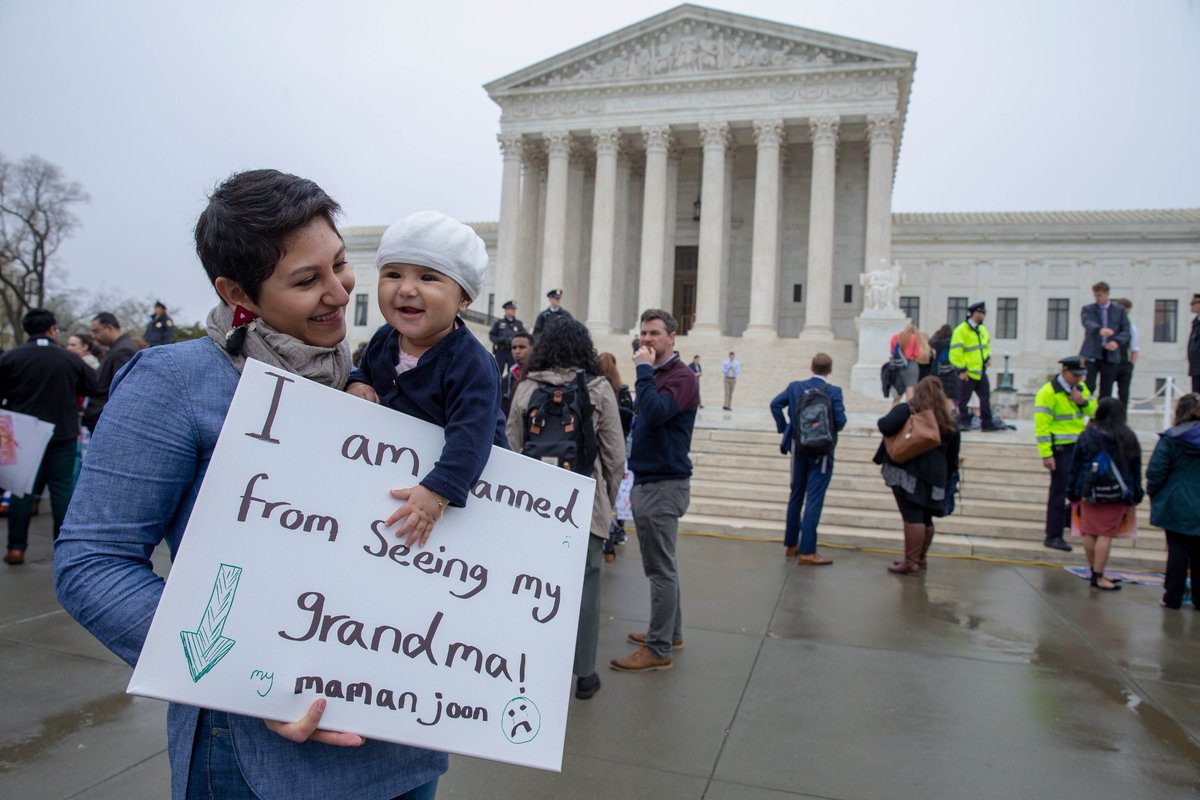 I am banned
from Seeing my
grandma!
my maman joon